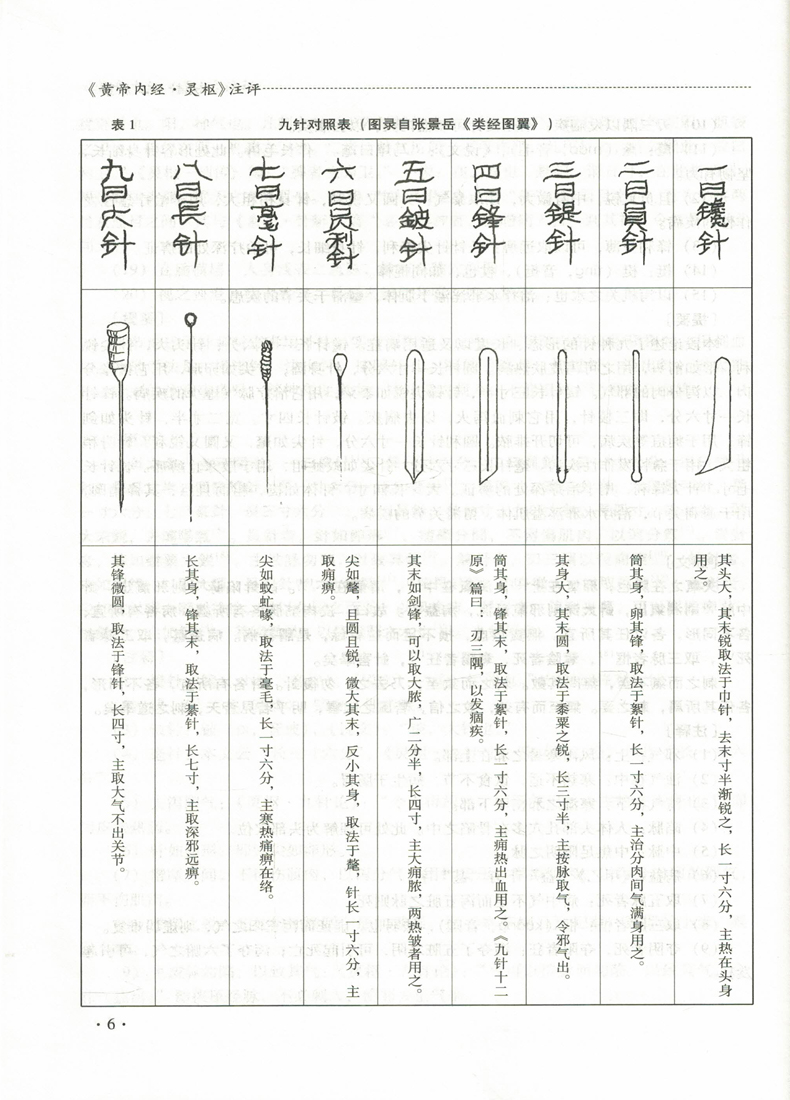 《黄帝内经·灵枢》注评
表1
九针对照表(图录自张景岳《类经图翼》)
一曰镵针
二曰員針
三曰鍉針
四曰鋒針
五曰鈹針
六曰员利針
七曰毫針
八曰長針
九曰大针
其头大，其末锐取法于巾针，去末寸半渐锐之，长一寸六分，主热在头身
用之。
筒其身，卵其锋，取法于絮针，长一寸六分，主治分肉间气满身用之。
其身大，其末圆，取法于黍粟之锐，长三寸半，主按脉取气，令邪气出。
筒其身，锋其末，取法于絮针，长一寸六分，主痈热出血用之。《九针十二
原》篇曰：刃三隅，以发痼疾。
其末如剑锋，可以取大脓，广二分半，长四寸，主大痈脓，两热皱者用之。
尖如氂，且圆且锐，微大其末，反小其身，取法于氂，针长一寸六分，主
取痈痹。
尖如蚊虻喙，取法于毫毛，长一寸六分，主寒热痛痹在络。
长其身，锋其末，取法于綦针，长七寸，主取深邪远痹。
其锋微圆，取法于锋针，长四寸，主取大气不出关节。
·6·